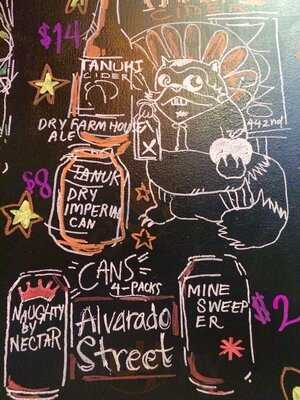 $14
TANUKI
CIDER
DRY FARMHOUSE
ALE
442nd
$8
TANUKI
DRY
IMPERIAL
CAN
CANS
4-PACKS
NAUGHTY
by
NECTAR
Alvarado
Street
MINE
SWEEP
ER
$2